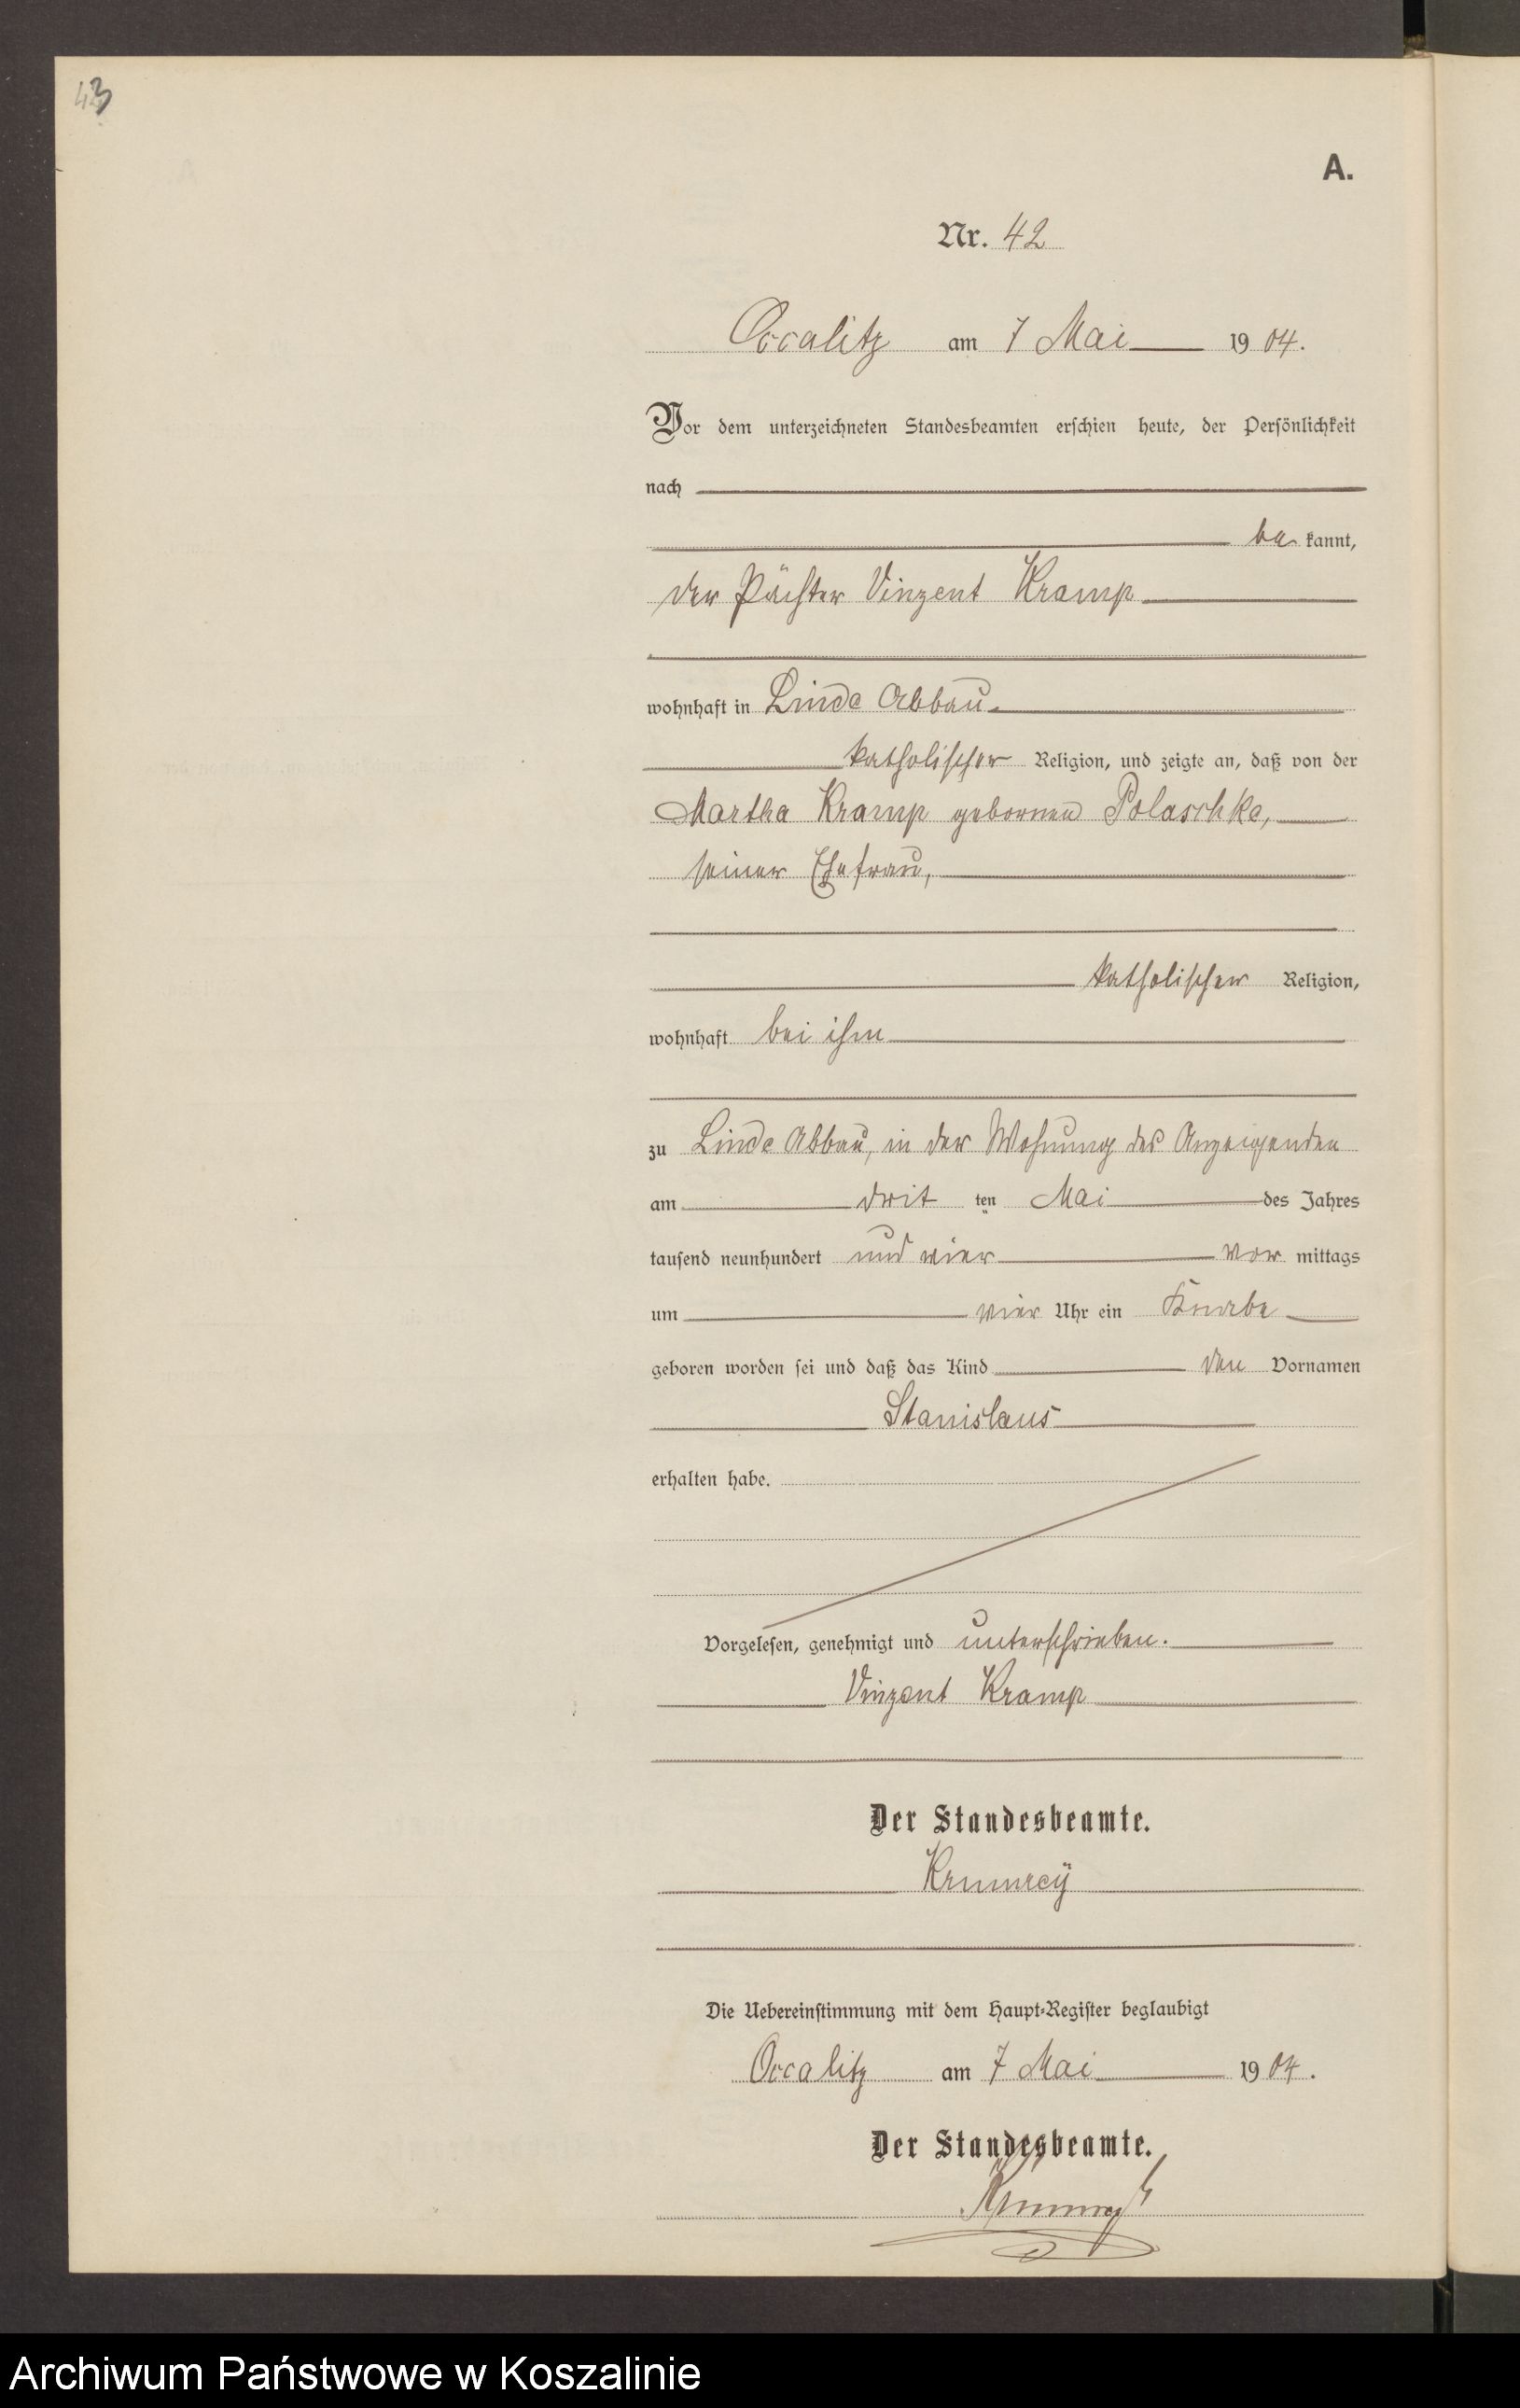 43
A.
Nr. 42
Occalitz am 7 Mai 1904.
Vor dem unterzeichneten Standesbeamten erschien heute, der Persönlichkeit
nach
be kannt,
der Pächter Vinzent Kramp
wohnhaft in Linde Abbau
katholischer Religion, und zeigte an, daß von der
Martha Kramp gebornen Polaschke,
seiner Ehefrau,
katholischer Religion,
wohnhaft bei ihm
zu Linde Abbau, in der Wohnung des Anzeigenden
am drit ten Mai des Jahres
tausend neunhundert und vier vor mittags
um vier Uhr ein Knabe
geboren worden sei und daß das Kind den Vornamen
Stanislaus
erhalten habe.
Vorgelesen, genehmigt und unterschrieben.
Vinzent Kramp
Der Standesbeamte.
Krumrey
Die Uebereinstimmung mit dem Haupt-Register beglaubigt
Occalitz am 7 Mai 1904.
Der Standesbeamte.
Krumrey
Archiwum Państwowe w Koszalinie